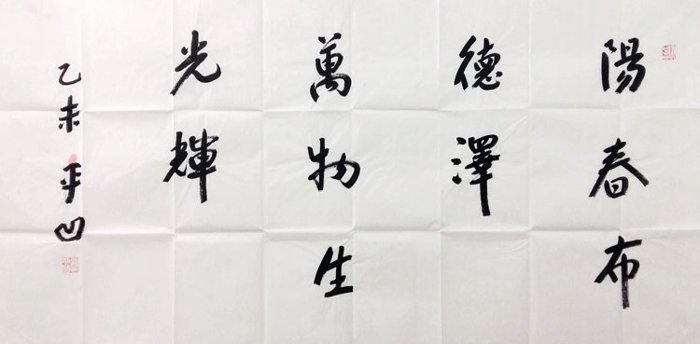 陽春布
德澤
萬物生
光輝
乙未 平凹